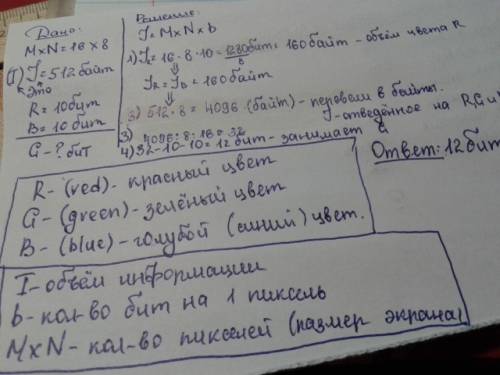 Дано:
MxN=16x8
(I) I=512 байт
это
R=10бит
B=10 бит
G-? бит
Решение:
I=MxNxb
1) I_R=16·8·10=1280бит=160байт-объём цвета R
8
I_R=I_B=160байт
2) 512·8=4096 (байт)-перевели в байты.
3) 4096:8:16=32 -отведённое на R,G и
4) 32-10-10=12 бит-занимает G
Ответ: 12бит
R-(red)-красный цвет
G-(green)-зелёный цвет
B-(blue)-голубой (синий) цвет.
I-объём информации
b-кол-во бит на 1 пиксель
MxN-кол-во пикселей (размер экрана)